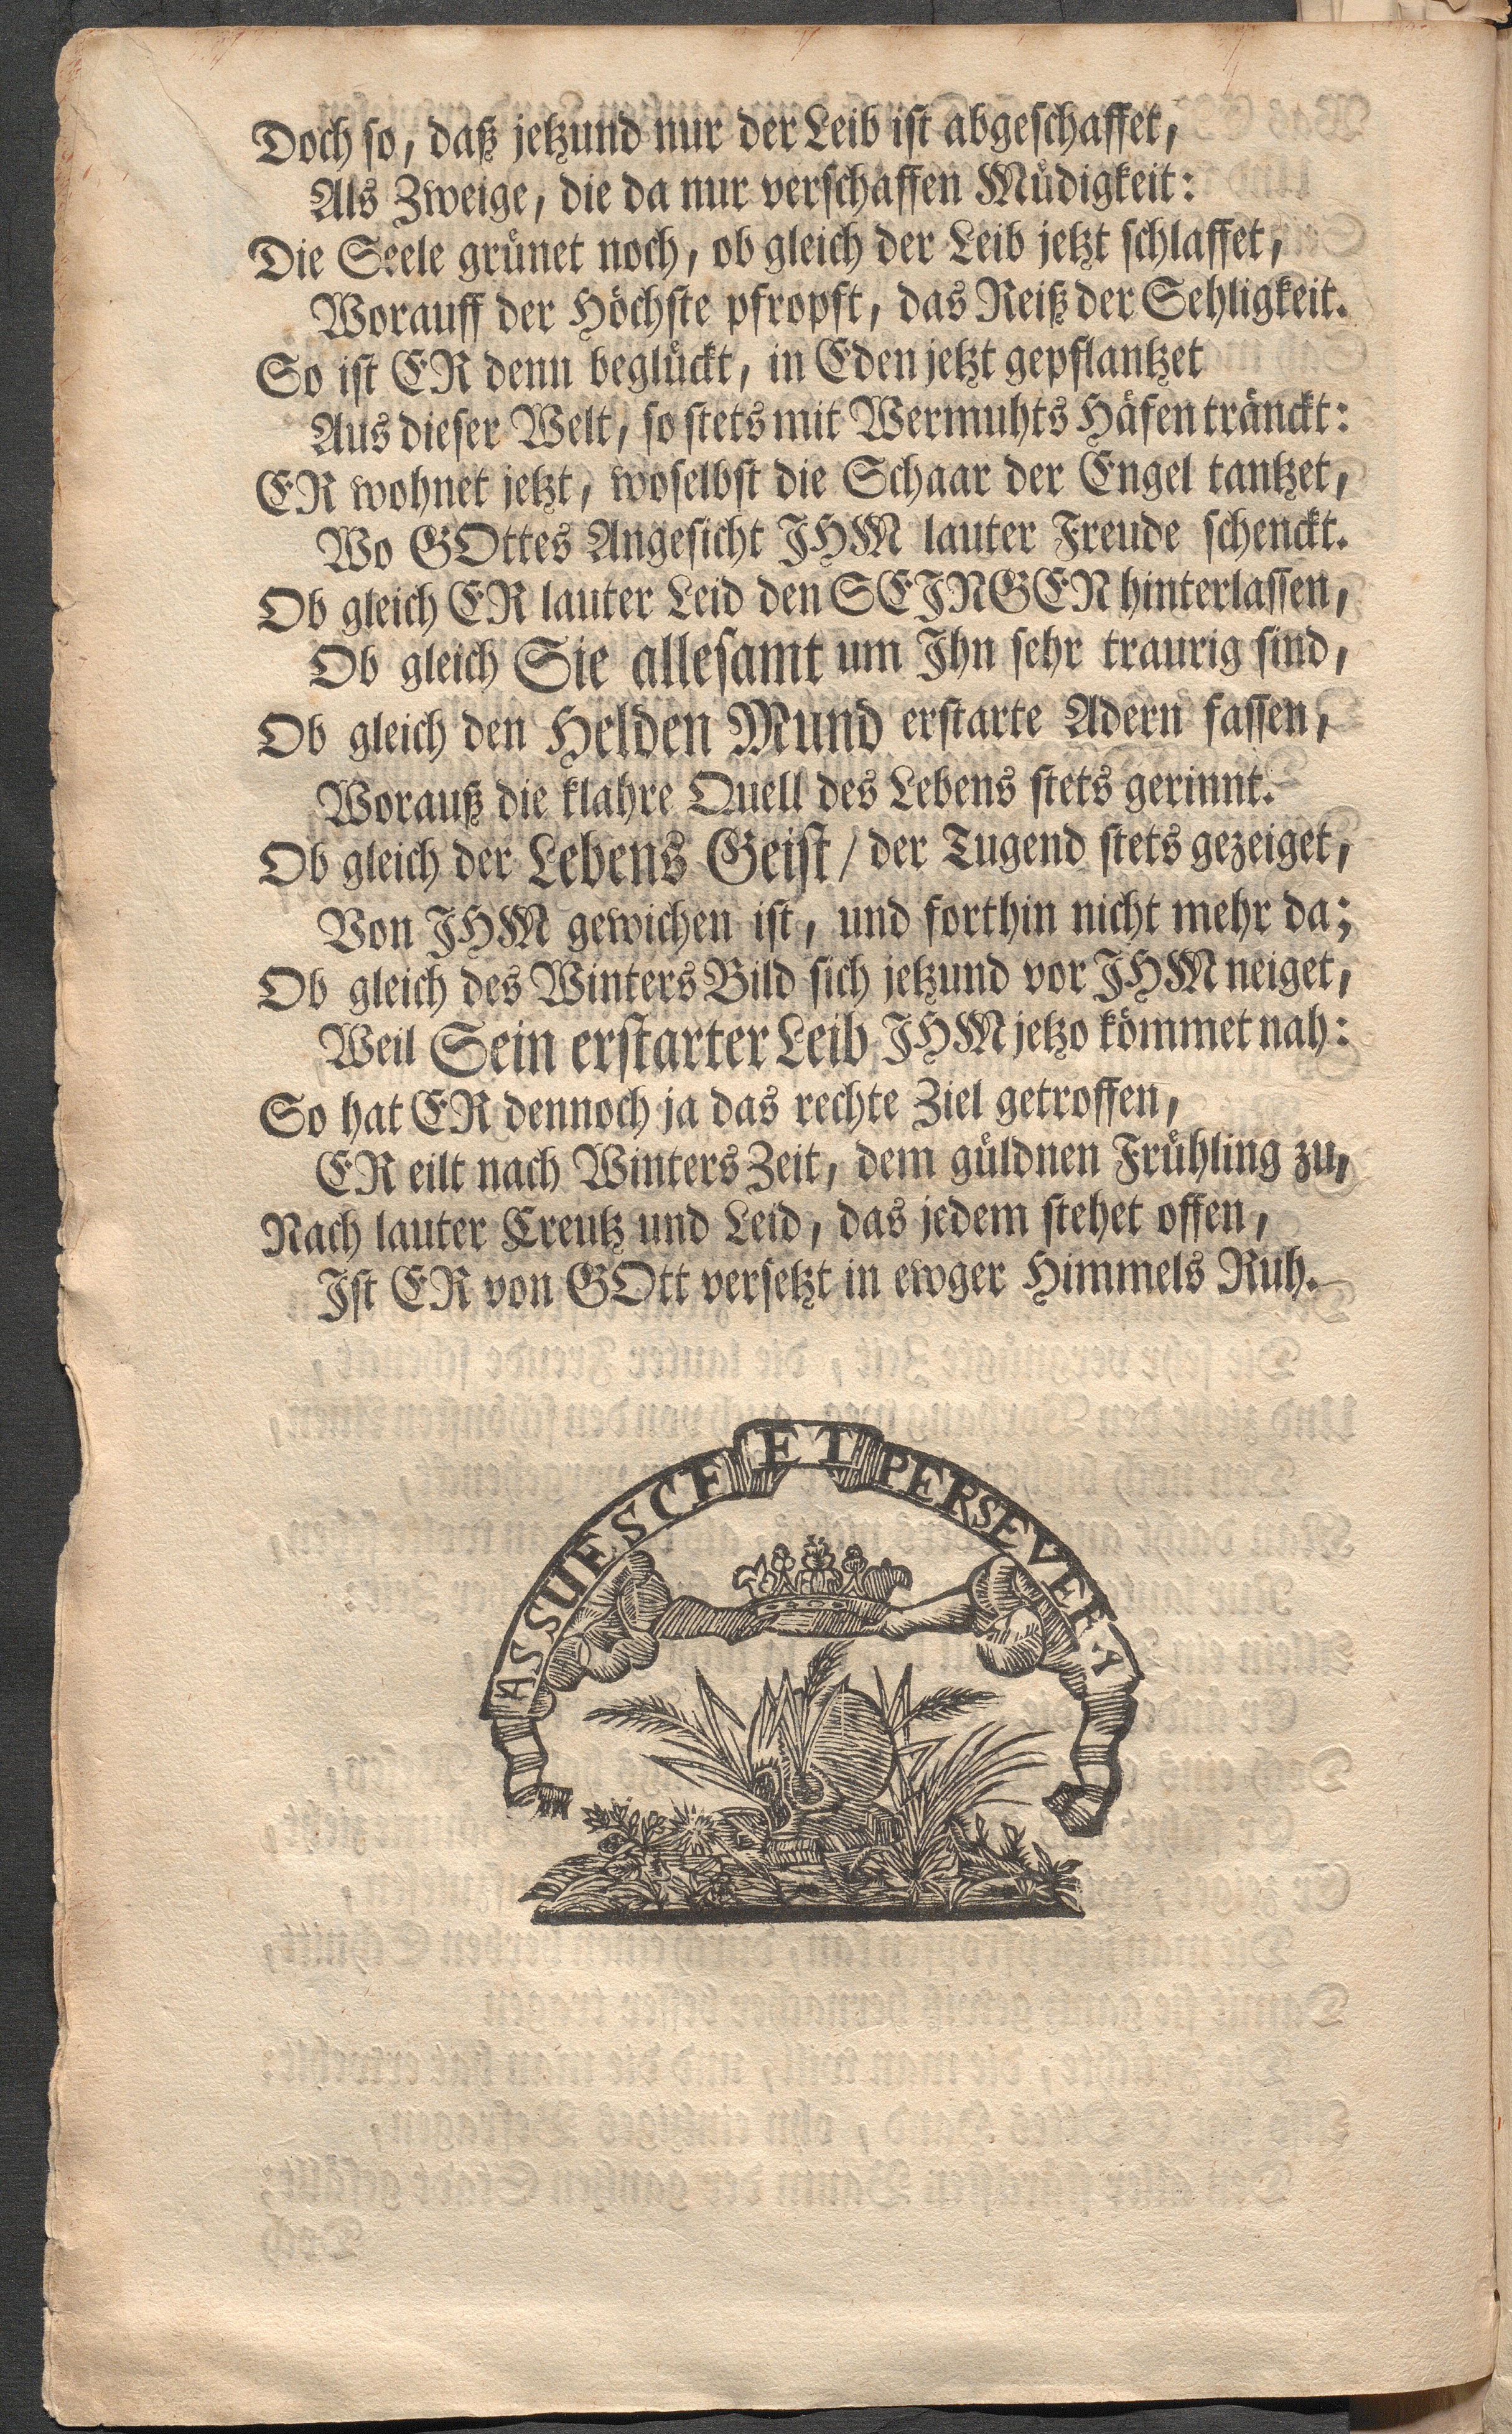 Doch so, daß jetzund nur der Leib ist abgeschaffet,
Als Zweige, die da nur verschaffen Müdigkeit:
Die Seele grünet noch, ob gleich der Leib jetzt schlaffet,
Worauff der Höchste pfropft, das Reiß der Sehligkeit.
So ist ER denn beglückt, in Eden jetzt gepflantzet
Aus dieser Welt, so stets mit Wermuhts Häfen tränckt:
ER wohnet jetzt, woselbst die Schaar der Engel tantzet,
Wo GOttes Angesicht JHM lauter Freude schenckt.
Ob gleich ER lauter Leid den SEJNGEN hinterlassen,
Ob gleich Sie allesamt um Jhn sehr traurig sind,
Ob gleich den Helden Mund erstarte Adern fassen,
Worauß die klahre Quell des Lebens stets gerinnt.
Ob gleich der Lebens Geist / der Tugend stets gezeiget,
Von JHM gewichen ist, und forthin nicht mehr da;
Ob gleich des Winters Bild sich jetzund vor JHM neiget,
Weil Sein erstarter Leib JHM jetzo kömmet nah:
So hat ER dennoch ja das rechte Ziel getroffen,
ER eilt nach Winters Zeit, dem güldnen Frühling zu,
Nach lauter Creutz und Leid, das jedem stehet offen,
Jst ER von GOtt versetzt in ewger Himmels Ruh.
ASSUESCE ET PERSEVERA